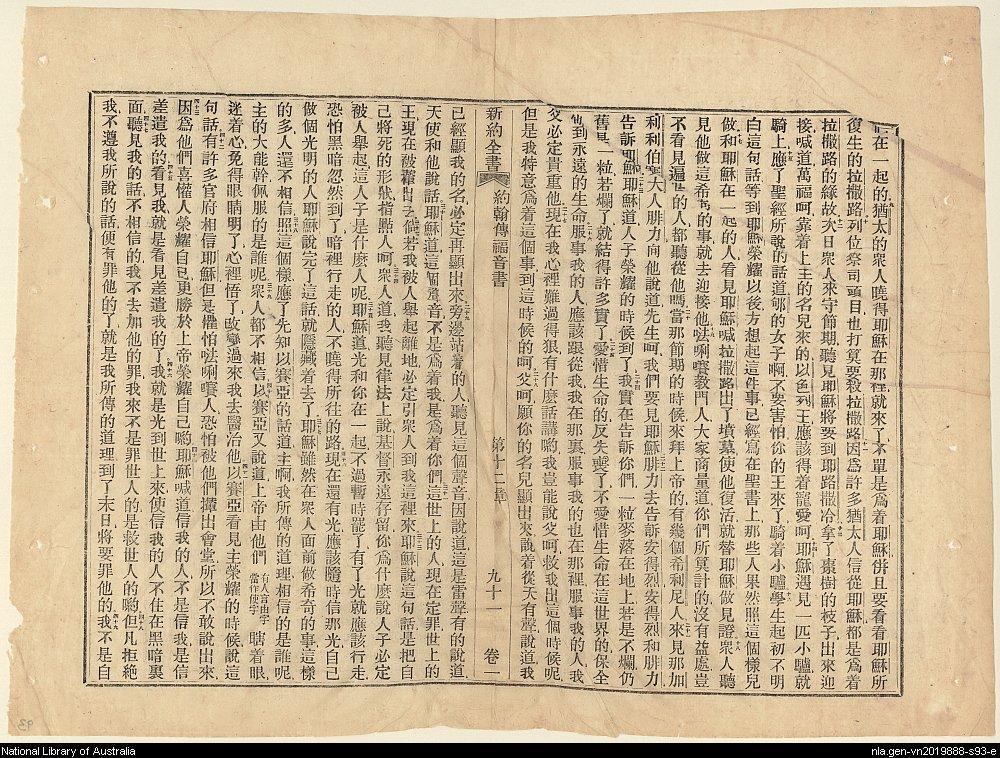 們在一起的猶太的衆人曉得耶穌在那裡就來了不單是爲着耶穌併且要看看耶穌所
復生的拉撒路列位祭司頭目也打筭要殺拉撒路因爲許多猶太人信從耶穌都是爲着
拉撒路的緣故次日衆人來守節期聽見耶穌將要到耶路撒冷拿了棗樹的枝子出來迎
接喊道萬福呵靠着上主的名兒來的以色列王應該得着寵愛呵耶穌遇見一匹小驢就
騎上應了聖經所說的話道郇的女子啊不要害怕你的王來了騎着小驢學生起初不明
白這句話等到耶穌榮耀以後方想起這件事已經寫在聖書上那些人果然照這個樣兒
做和耶穌在一起的人看見耶穌喊拉撒路出了墳墓使他復活就替耶穌做見證衆人聽
見他做這希奇的事就去迎接他㕸唎賽教門人大家商量道你們所筭計的沒有益處豈
不看見遍世的人都聽從他嗎當那節期的時候來拜上帝的有幾個希利尼人來見那加
利利伯賽大人腓力向他說道先生呵我們要見耶穌腓力去告訴安得烈安得烈和腓力
告訴耶穌耶穌道人子榮耀的時候到了我實在告訴你們一粒麥落在地上若是不爛仍
舊是一粒若爛了就結得許多實了愛惜生命的反失喪了不愛惜生命在這世界的保全
他到永遠的生命服事我的人應該跟從我我在那裏服事我的也在那裡服事我的人我
父必定貴重他現在我心裡難過得狠有什麼話講喲我豈能說父呵救我出這個時候呢
但是我特意爲着這個事到這時候的呵父呵顯你的名兒顯出來說着從天有聲說道我
新約全書 約翰傳福音書 第十二章 九十一 卷一
已經顯我的名必定再顯出來旁邊站着的人聽見這個聲音因說道這是雷聲有的說道
天使和他說話耶穌道這個聲音不是爲着我是爲着你們這世上的人現在定罪世上的
王現在被攆出去倘若我被人舉起離地必定引衆人到我這裡來耶穌說這句話是把自
己將死的形狀指點人呵衆人道我聽見律法上說基督永遠存留你爲什麼說人子必定
被人舉起這人子是什麼人呢耶穌道光和你在一起不過暫時罷了有了光就應該行走
恐怕黑暗忽然到了暗裡行走的人不曉得所往的路現在還有光應該隨時信那光自己
做個光明的人耶穌說完了這話就隱藏着去了耶穌雖然在衆人面前做希奇的事這樣
的多人還不相信照這個樣應了先知以賽亞的話道主啊我所傳的道理相信的是誰呢
主的大能幹佩服的是誰呢衆人都不相信以賽亞又說道上帝由他們 有人言由字當作使字 瞎着眼
迷着心免得眼睛明了心裡悟了改變過來我去醫治他以賽亞看見主榮耀的時候說這
句話有許多官府相信耶穌但是懼怕㕸唎賽人恐怕被他們攆出會堂所以不敢說出來
因爲他們喜懽人榮耀自己更勝於上帝榮耀自己喲耶穌喊道信我的人不是信我是信
差遣我的看見我就是看見差遣我的了我就是光到世上來使信我的人不住在黑暗裏
面聽見我的話不相信的我不去加他的罪我來不是罪世人的是救世人的喲但凡拒絶
我不遵我所說的話便有罪他的了就是我所傳的道理到了末日將要罪他的我不是自
93
National Library of Australia
nla.gen-vn2019888-s93-e